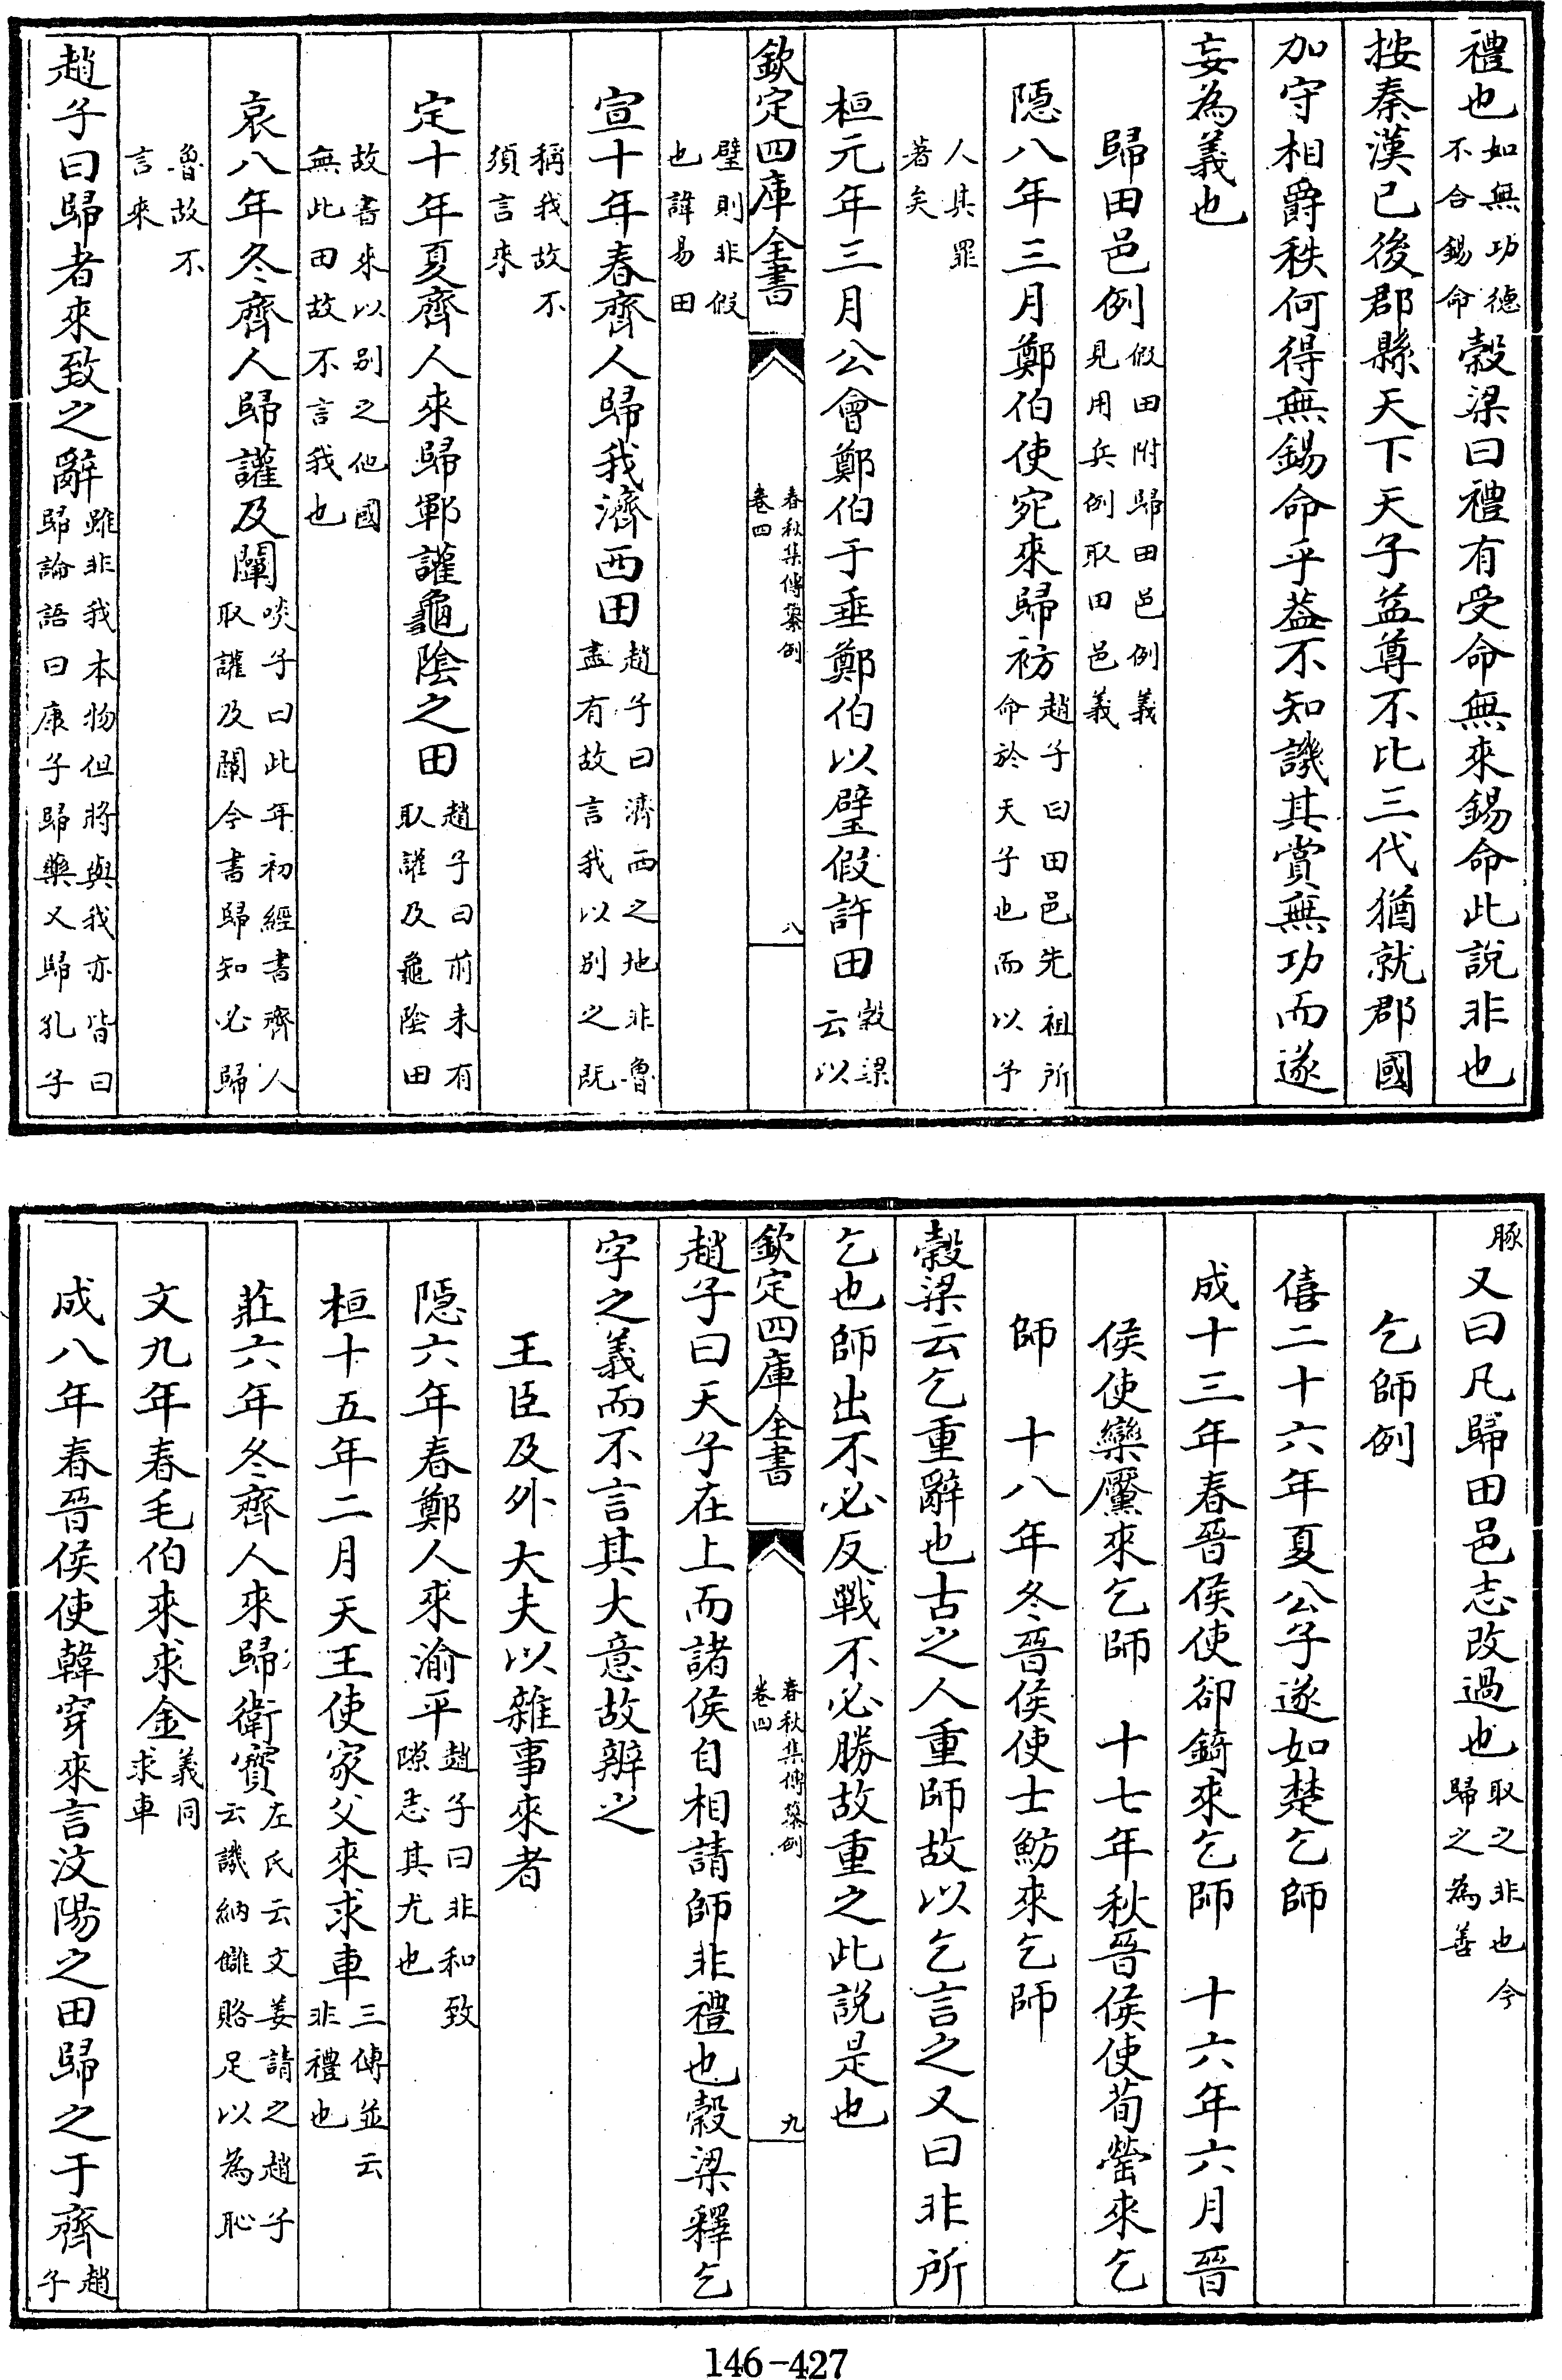 禮也如無功德不合錫命穀梁曰禮有受命無來錫命此說非也
按秦漢已後郡縣天下天子益尊不比三代猶就郡國
加守相爵秩何得無錫命乎葢不知譏其賞無功而遂
妄為義也
歸田邑例假田附歸田邑例義見用兵例取田邑義
隠八年三月鄭伯使宛來歸祊趙子曰田邑先祖所命於天子也而以予
人其罪著矣
桓元年三月公會鄭伯于垂鄭伯以璧假許田穀梁云以
欽定四庫全書
春秋集傳纂例
卷四
八
璧則非假也諱易田
宣十年春齊人歸我濟西田趙子曰濟西之地非魯盡有故言我以别之既
稱我故不須言來
定十年夏齊人來歸鄆讙龜陰之田趙子曰前未有取讙及龜陰田
故書來以别之他國無此田故不言我也
哀八年冬齊人歸讙及闡啖子曰此年初經書齊人取讙及闡今書歸知必歸
魯故不言來
趙子曰歸者來致之辭雖非我本物但將與我亦皆曰歸論語曰康子歸藥又歸孔子
豚又曰凡歸田邑志改過也取之非也今歸之為善
乞師例
僖二十六年夏公子遂如楚乞師
成十三年春晉侯使郤錡來乞師　十六年六月晉
侯使欒黶來乞師　十七年秋晉侯使荀罃來乞
師　十八年冬晉侯使士魴來乞師
穀梁云乞重辭也古之人重師故以乞言之又曰非所
乞也師出不必反戰不必勝故重之此説是也
欽定四庫全書
春秋集傳纂例
卷四
九
趙子曰天子在上而諸侯自相請師非禮也穀梁釋乞
字之義而不言其大意故辨之
王臣及外大夫以雜事來者
隠六年春鄭人來渝平趙子曰非和致隙志其尤也
桓十五年二月天王使家父來求車三傳並云非禮也
莊六年冬齊人來歸衛寳左氏云文姜請之趙子云譏納讎賂足以為恥
文九年春毛伯來求金義同求車
成八年春晉侯使韓穿來言汶陽之田歸之于齊趙子
146-427